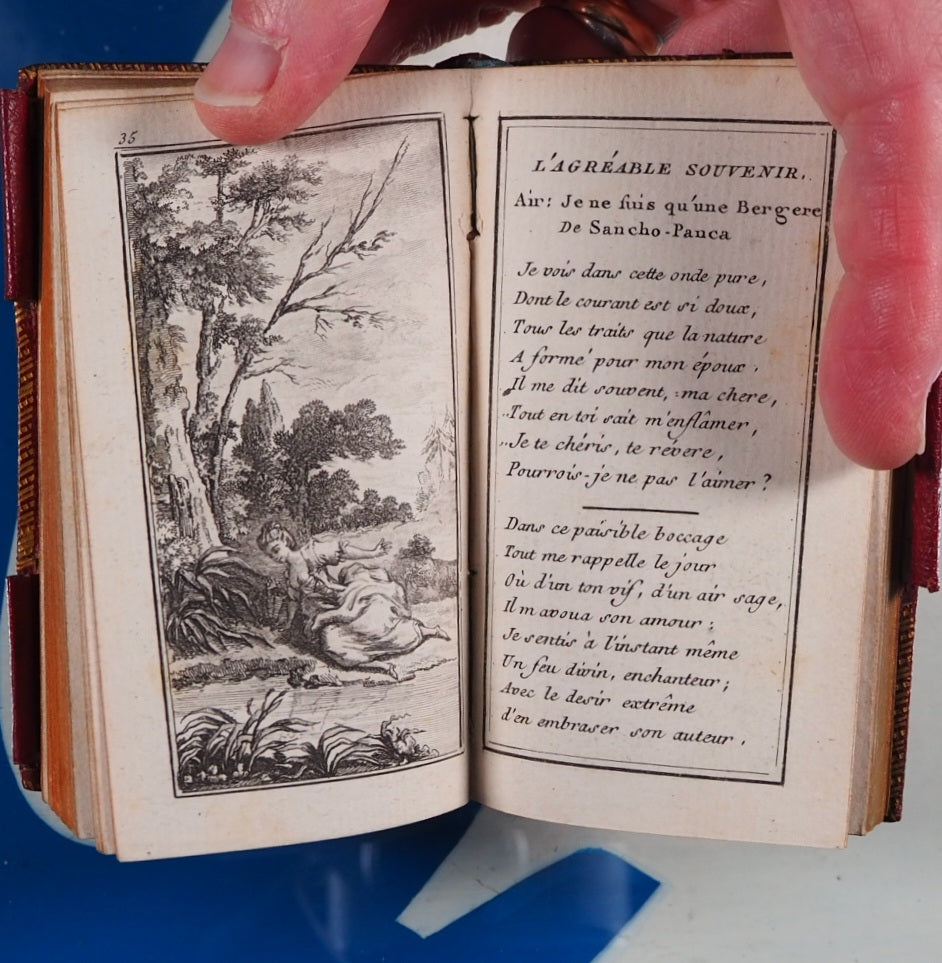 35
L'AGRÉABLE SOUVENIR.
Air: Je ne suis qu'une Bergere
De Sancho-Panca
Je vois dans cette onde pure,
Dont le courant est si doux,
Tous les traits que la nature
A formé pour mon époux.
Il me dit souvent, :ma chere,
„Tout en toi sait m'enflâmer,
„Je te chéris, te révere,
Pourrois-je ne pas l'aimer?
Dans ce paisible boccage
Tout me rappelle le jour
Où d'un ton vif, d'un air sage,
Il m avoua son amour;
Je sentis à l'instant même
Un feu divin, enchanteur;
Avec le desir extrême
d'en embraser son auteur.